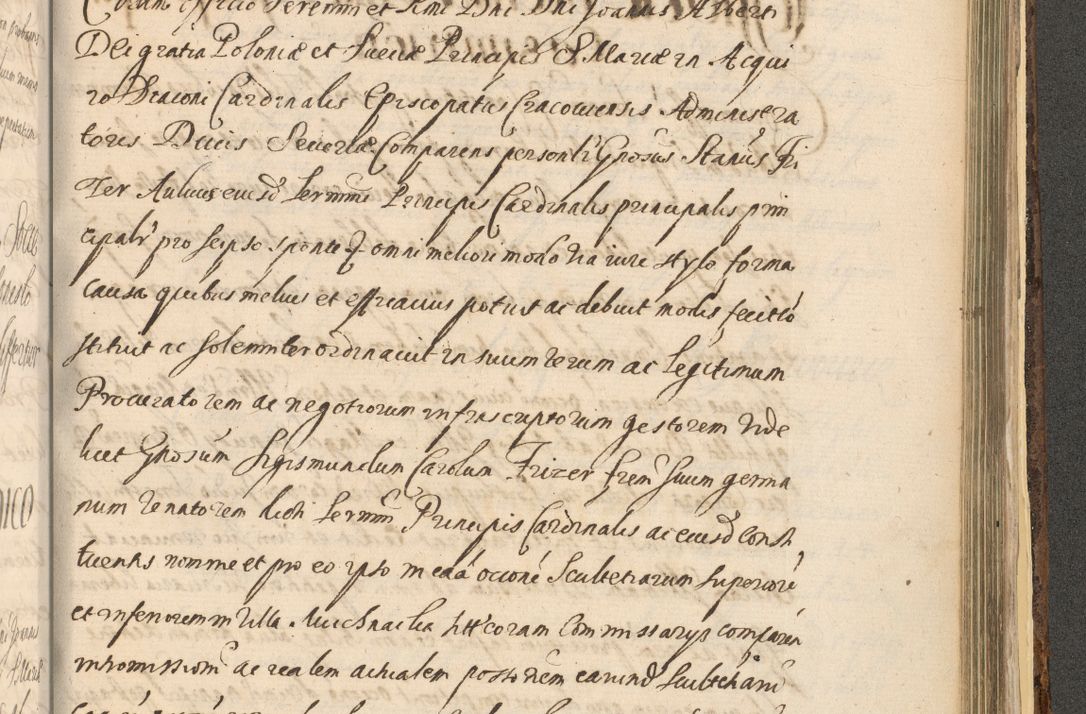 Coram officio Serenmi et Rmi Dni Dni Joannis Alberti
Dei gratia Poloniæ et Sueciæ Principis S. Mariæ in Acqui
ro Diaconi Cardinalis Episcopatus Cracouiensis Administra
toris Ducis Seueriæ Comparens personlr Gnosus Stanus Fri
zer Aulicus eiusd Sermmi Principis Cardinalis principalis prin
cipalr pro seipso sponte et omni meliori modo via iure stylo forma
causa quibus melius et efficacius potuit ac debuit modis fecit co
stituit ac solemniter ordinauit in suum verum ac legitimum
Procuratorem ac negotiorum infrascriptorum gestorem vide
licet Gnosum Sigismundum Carolum Frizer frem suum germa
num Venatorem dicti Sermmi Principis Cardinalis ac eiusd Consti
tuentis nomine et pro eo ipso in eaa ocione Scultetiarum superiore
et inferiorem in Villa Muchnacka htt coram Commissarys comparen
intromissiom ac realem actualem possionem earund Scultetiaru